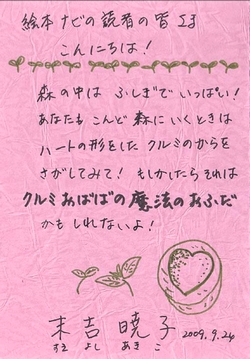 絵本ナビの読者の皆さま
こんにちは！
森の中は ふしぎで いっぱい！
あなたも こんど 森に いくときは
ハートの形をした クルミのからを
さがしてみて！ もしかしたら それは
クルミおばばの魔法のおふだ
かも しれないよ！
末吉 暁子
すえ よし あき こ
2009.9.24